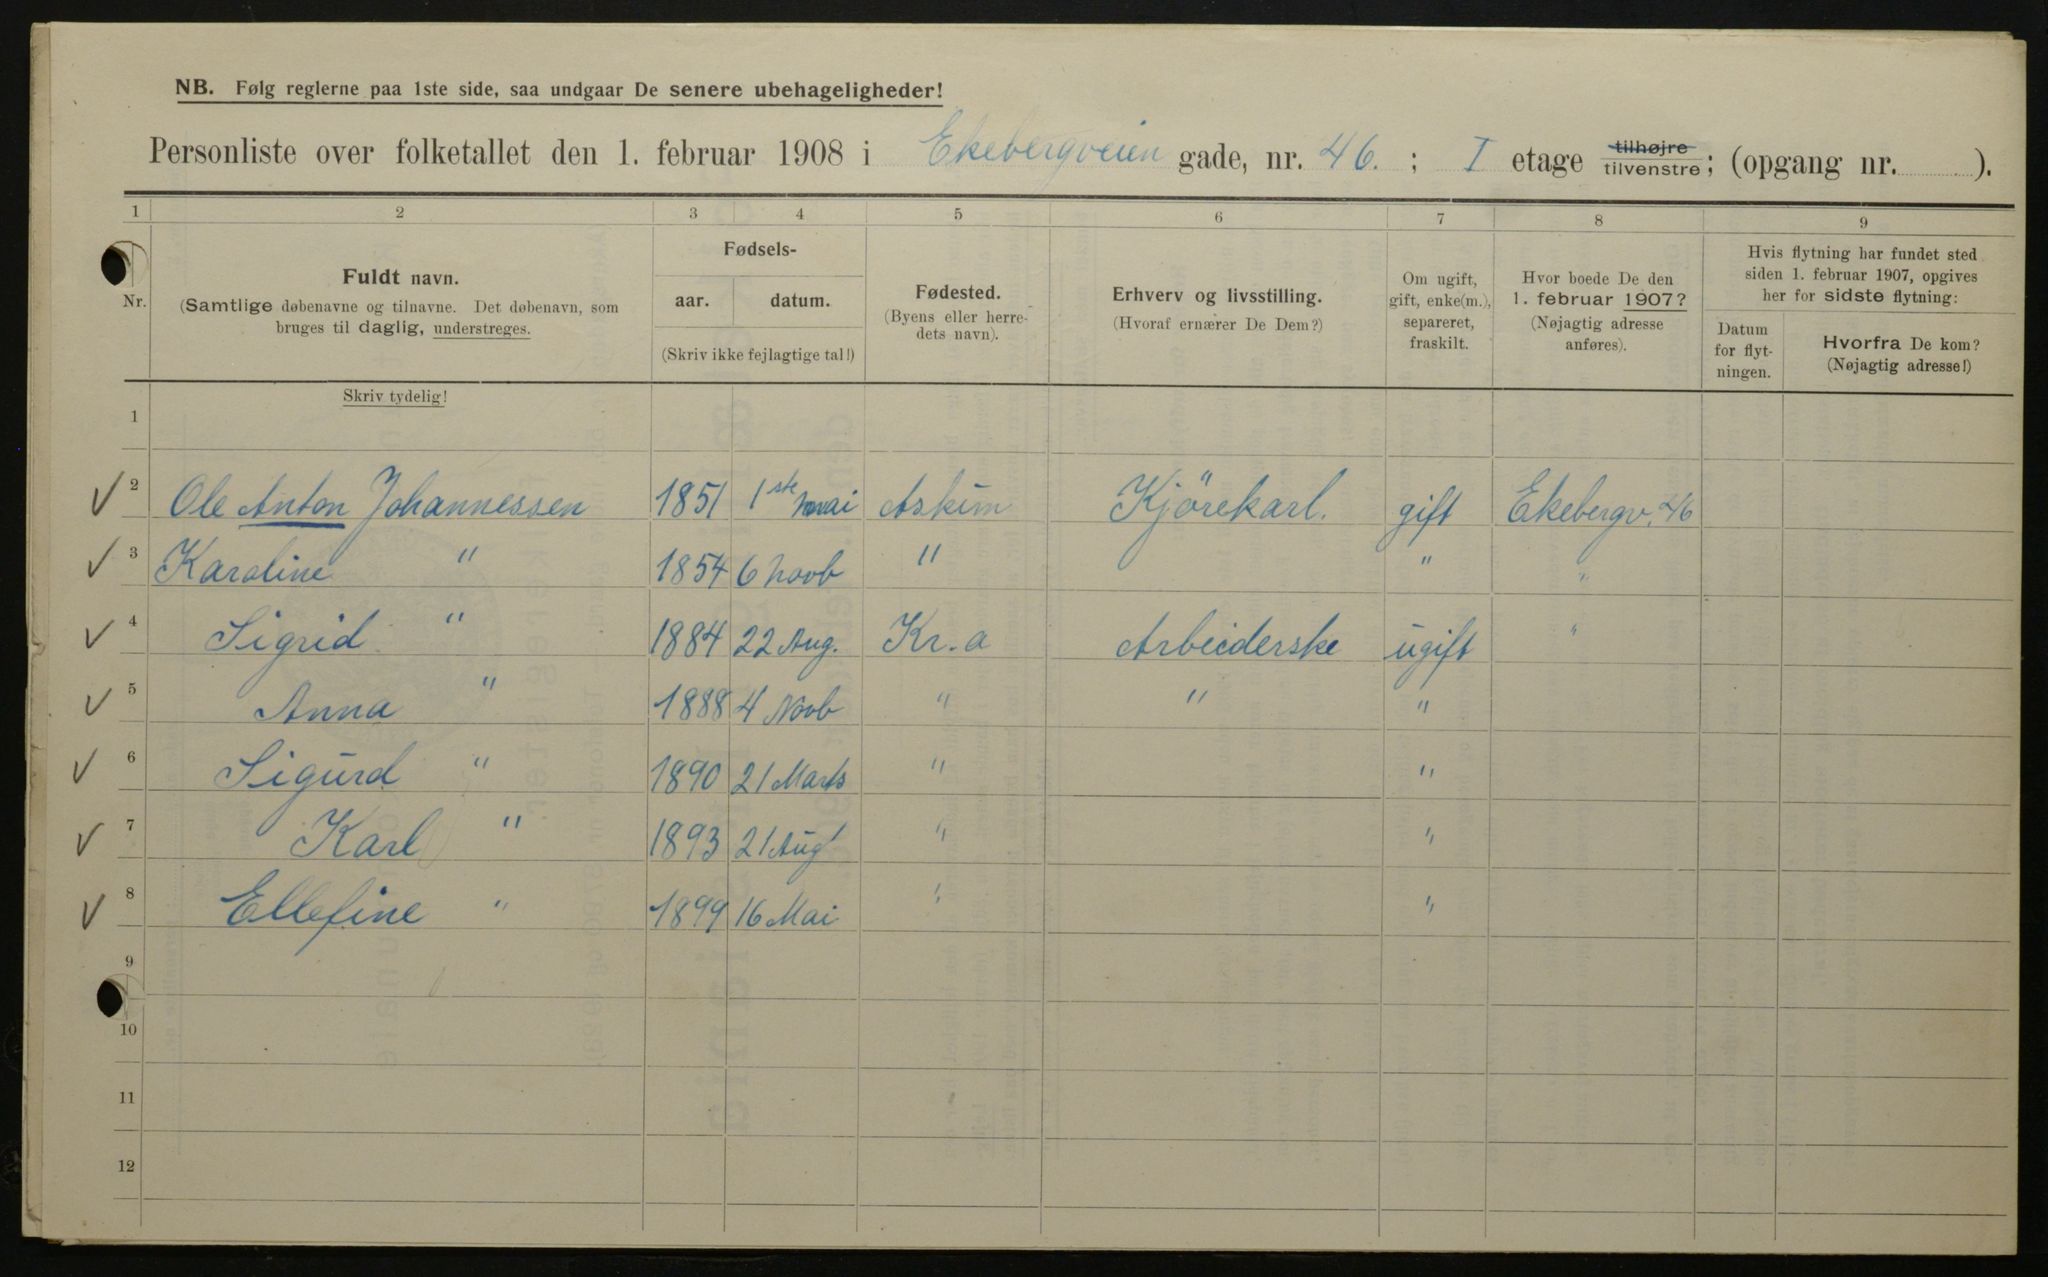 NB. Følg reglerne paa 1ste side, saa undgaar De senere ubehageligheder!
Personliste over folketallet den 1. februar 1908 i Ekebergveien gade, nr. 46. ; I etage tilhøjre tilvenstre; (opgang nr. ).
1 2 3 4 5 6 7 8 9
Nr.
Fuldt navn.
(Samtlige døbenavne og tilnavne. Det døbenavn, som
bruges til daglig, understreges.
Skriv tydelig!
Fødsels-
aar. datum.
(Skriv ikke fejlagtige tal!)
Fødested.
(Byens eller herre-
dets navn).
Erhverv og livsstilling.
(Hvoraf ernærer De Dem?)
Om ugift,
gift, enke(m.),
separeret,
fraskilt.
Hvor boede De den
1. februar 1907?
(Nøjagtig adresse
anføres).
Hvis flytning har fundet sted
siden 1. februar 1907, opgives
her for sidste flytning:
Datum
for flyt-
ningen.
Hvorfra De kom?
(Nøjagtig adresse!)
1
2 Ole Anton Johannessen 1851 1ste mai Askim Kjörekarl. gift Ekebergv. 46
3 Karoline " 1854 6 novb " " "
4 Sigrid " 1884 22 Aug. Kr.a Arbeiderske ugift "
5 Anna " 1888 4 Novb " " "
6 Sigurd " 1890 21 Marts " "
7 Karl " 1893 21 Aug " "
8 Ellefine " 1899 16 Mai " "
9
10
11
12